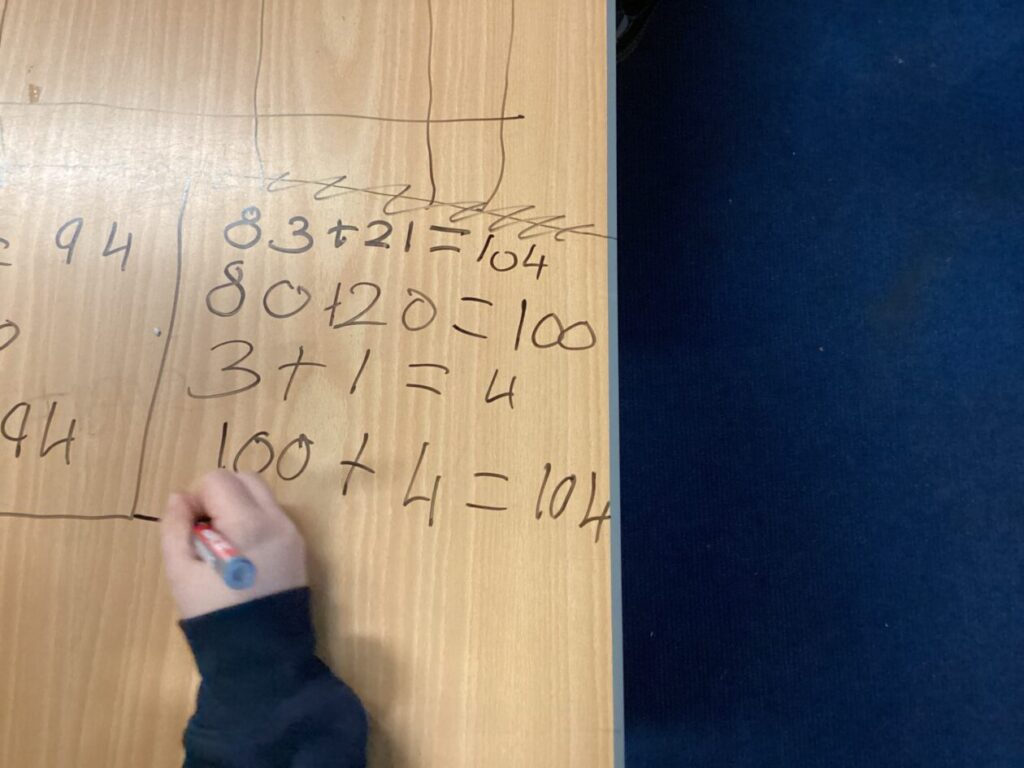 = 94
0
94
83+21=104
80+20=100
3+1=4
100+4=104